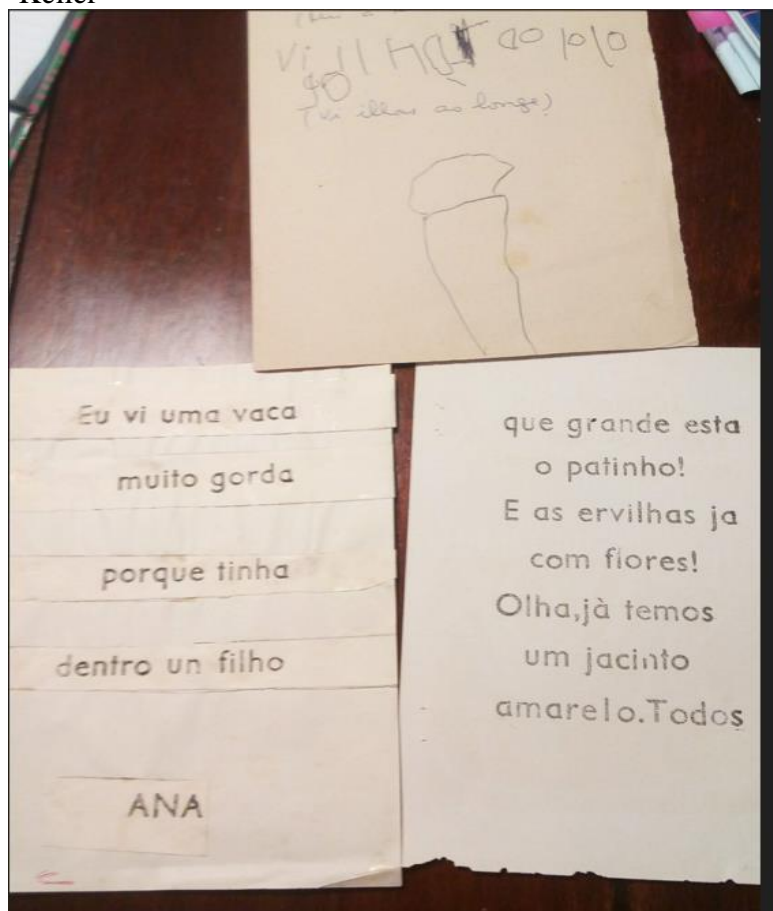 Keller
Vi
(Vi ilhas ao longe)
Eu vi uma vaca
muito gorda
porque tinha
dentro un filho
ANA
que grande esta
o patinho!
E as ervilhas ja
com flores!
Olha,jà temos
um jacinto
amarelo.Todos